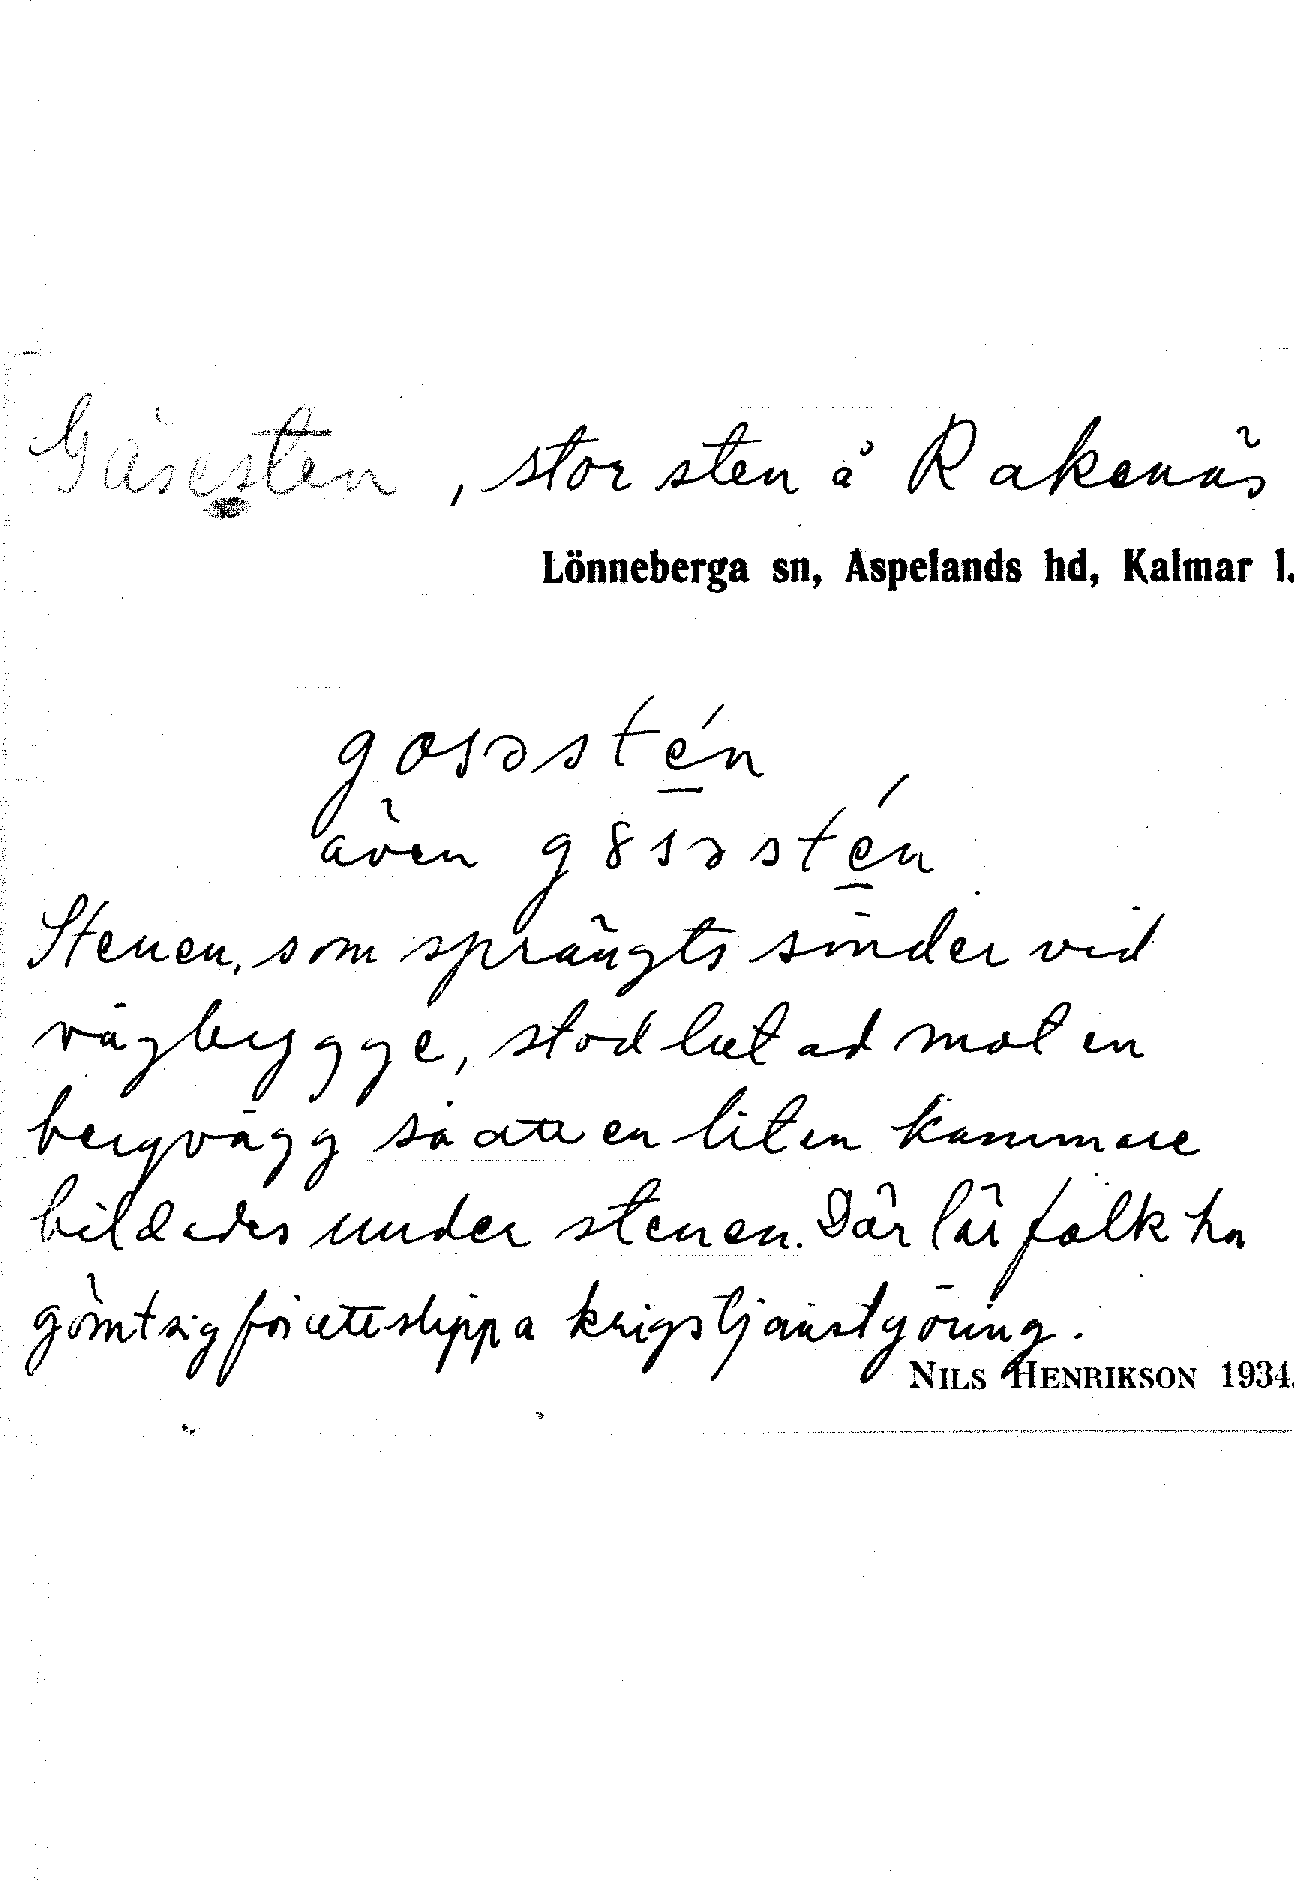 Gåsesten, stor sten å Rakenäs
Lönneberga sn, Aspelands hd, Kalmar l.
gosəstén
även g8səstén
Stenen, som sprängts sönder vid
vägbygge, stod lutad mot en
bergvägg så att en liten kammare
bildades under stenen. Där lär folk ha
gömt sig för att slippa krigstjänstgöring.
NILS HENRIKSON 1934.